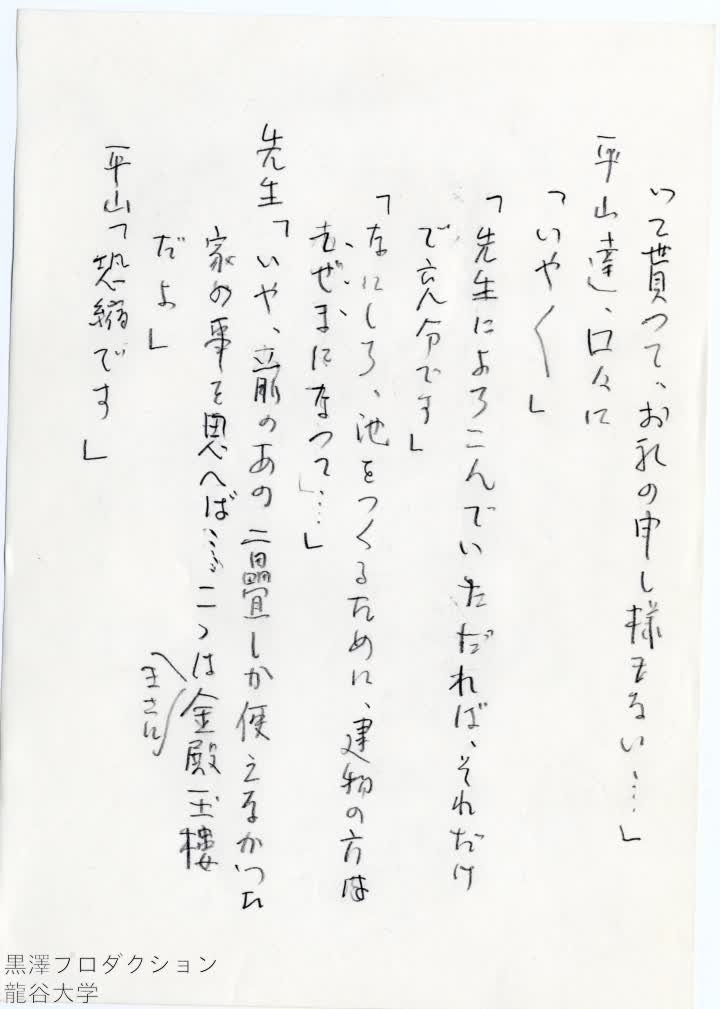 いて貰って、お礼の申し様もない…」
平山達、口々に
「いや〱」
「先生によろこんでいただれば、それだけ
で充分です」
「なにしろ、池をつくるために、建物の方は
むぜまになって…」
先生「いや、前のあの二畳しか使えなかった
家の事を思へば…こゝは金殿玉楼
まさに
だよ」
平山「恐縮です」
黒澤プロダクション
龍谷大学